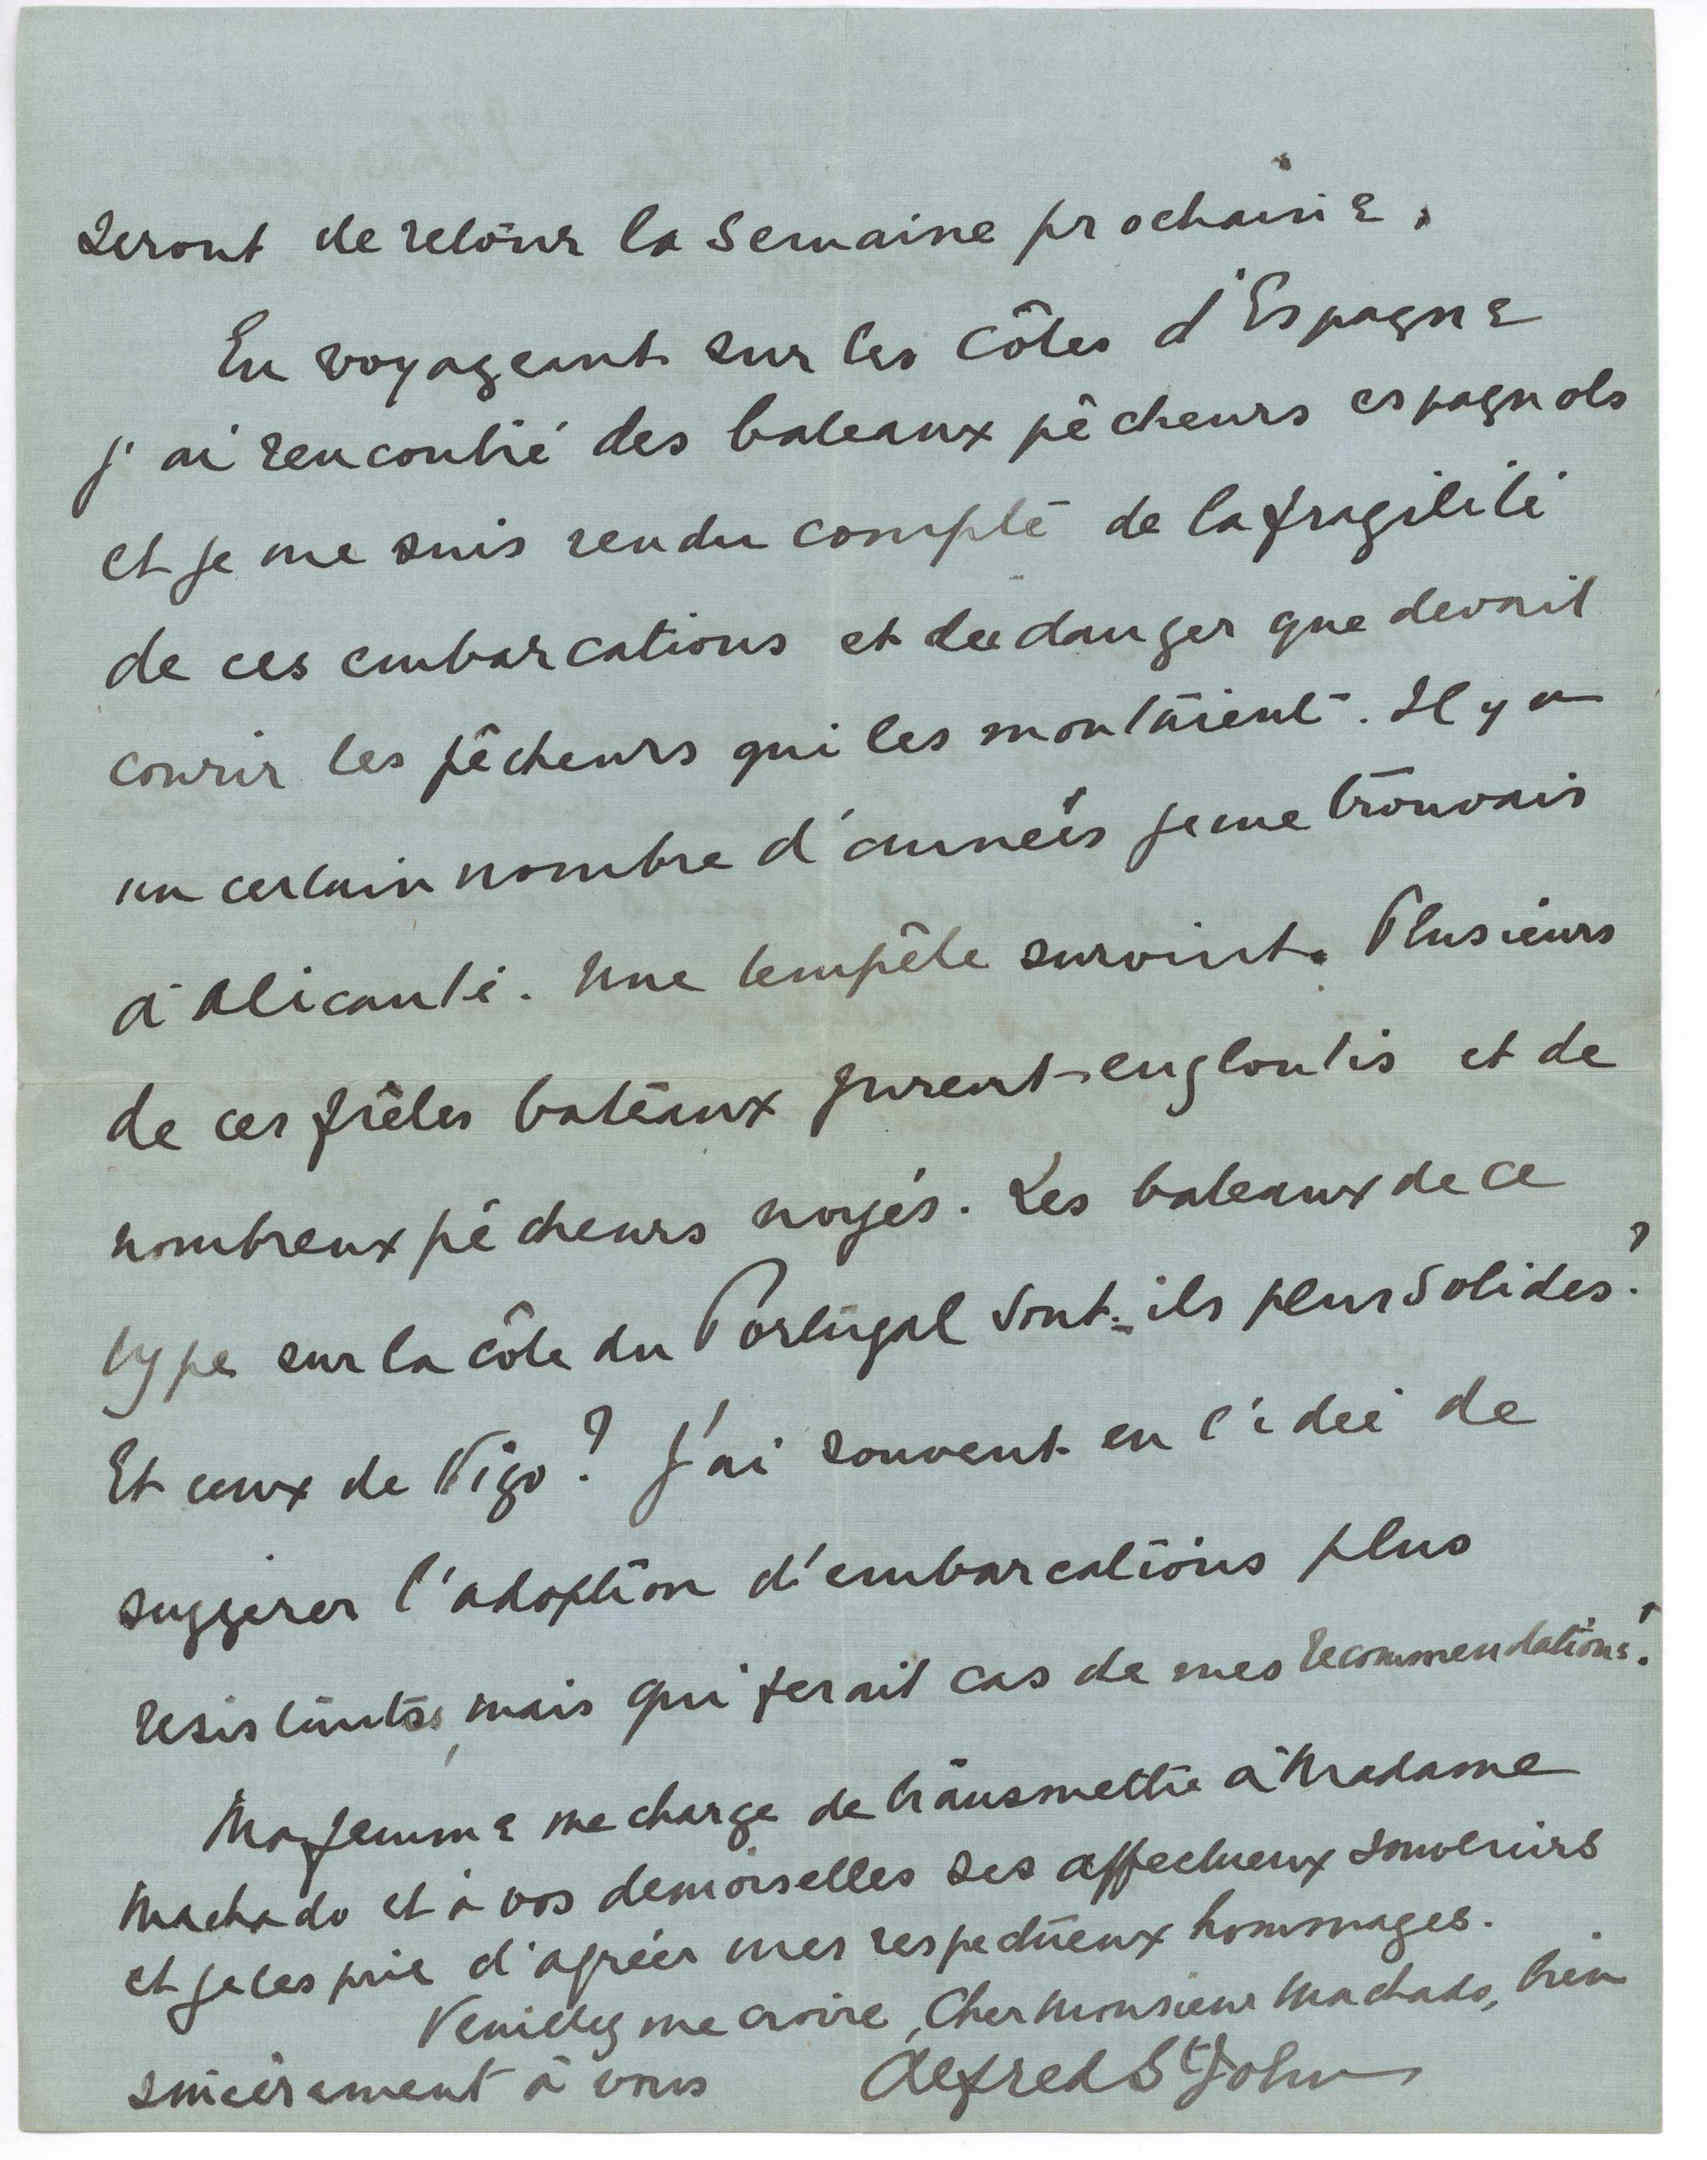 seront de retour la semaine prochaine.
En voyageant sur les côtes d'Espagne
j'ai rencontré des bateaux pêcheurs espagnols
et je me suis rendu compte de la fragilité
de ces embarcations et du danger que devait
courir les pêcheurs qui les montaient. Il y a
un certain nombre d'années je me trouvais
à Alicante. Une tempête survint. Plusieurs
de ces frêles bateaux furent engloutis et de
nombreux pêcheurs noyés. Les bateaux de ce
type sur la côte du Portugal sont-ils plus solides?
Et ceux de Vigo? J'ai souvent eu l'idée de
suggerer l'adoption d'embarcations plus
resistantes, mais qui ferait cas de mes recommendations?
Ma femme me charge de transmettre à Madame
Machado et à vos demoiselles ses affectueux souvenirs
et je les prie d'agréer mes respectueux hommages.
Veuillez me croire, Cher Monsieur Machado, bien
sincèrement à vous Alfred St John